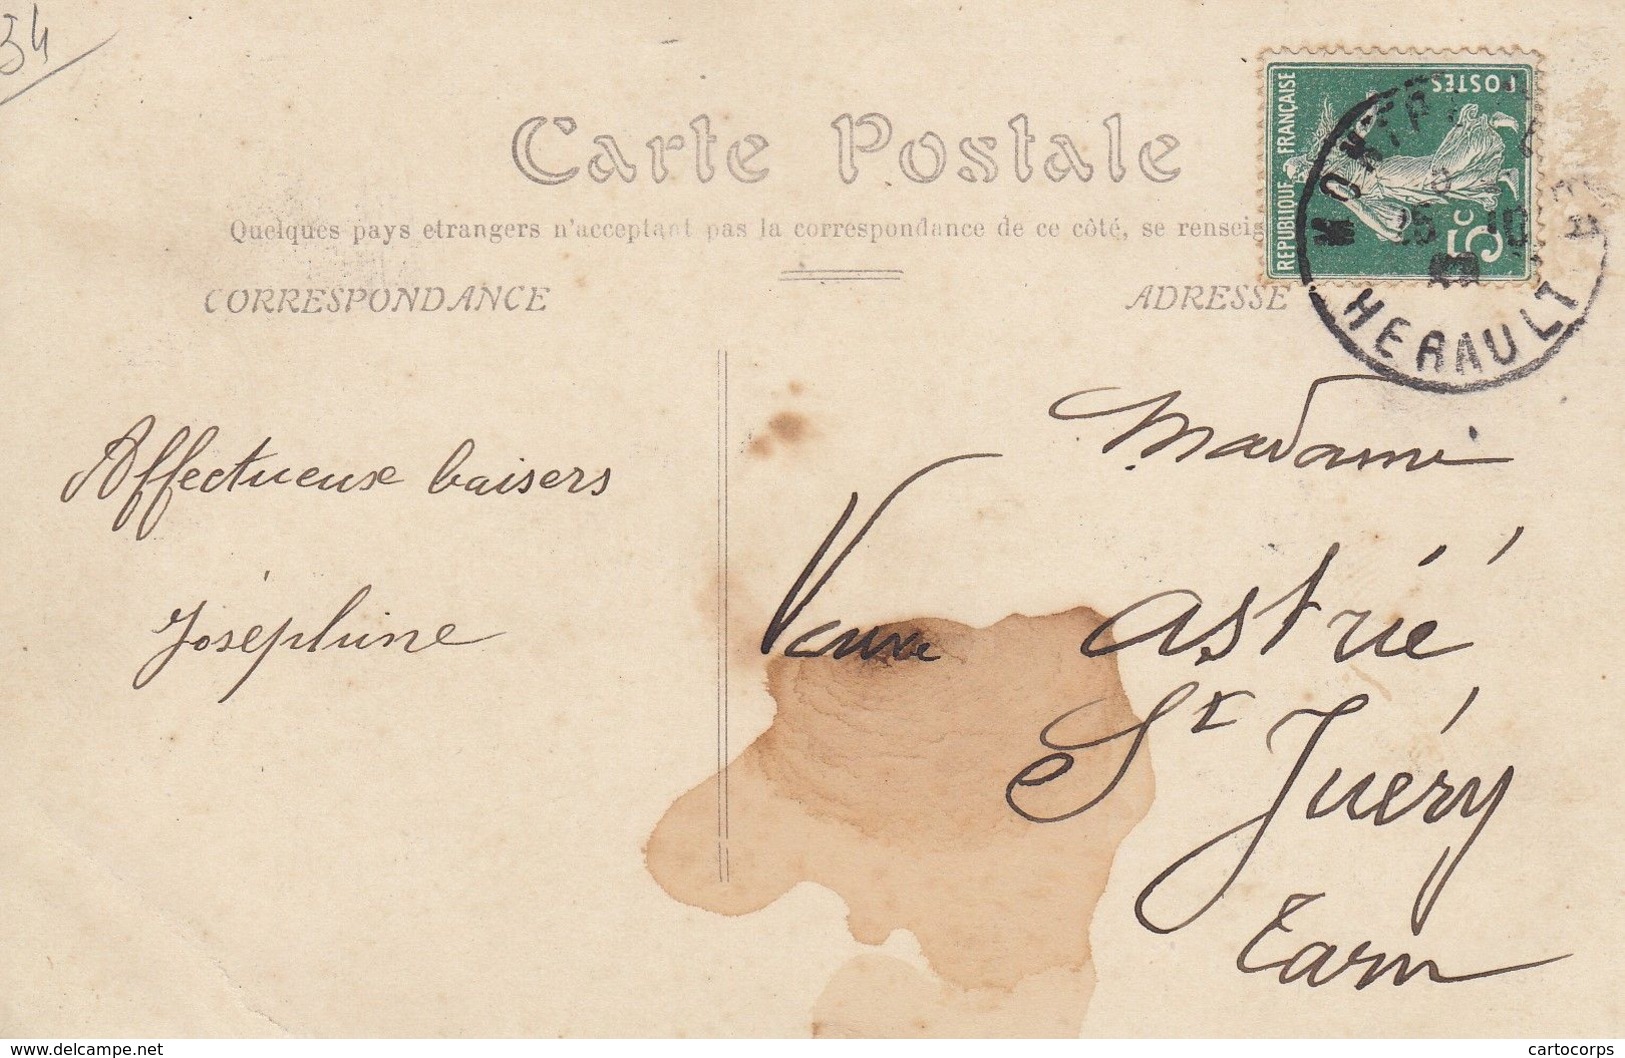 34
Carte Postale
Quelques pays etrangers n'acceptant pas la correspondance de ce côté, se
CORRESPONDANCE
ADRESSE
REPUBLIQUE FRANÇAISE
POSTES
5c
HERAULT
Affectueux baisers
Joséphine
Madame
Veuve Astrié
St Juéry
Tarn
www.delcampe.net
cartocorps